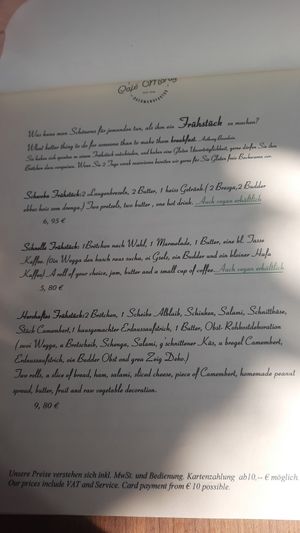 Was kann man Schöneres für jemanden tun, als ihm ein Frühstück zu machen?
What better thing to do for someone than to make them breakfast. Anthony Bourdain
Sie haben sich spontan zu einem Frühstück entschieden, und haben eine Gluten Unverträglichkeit, gerne dürfen Sie ihre
Brötchen dazu mitbringen. Wenn Sie 2 Tage vorab reservieren bereiten wir gerne für Sie Gluten freie Backwaren vor.
Frühstück:2 Laugenbrezeln, 2 Butter, 1 heiss Getränk (2 Brezga,2 Budder
ebbas heis zom drenga.) Two pretzels, two butter, one hot drink. Auch vegan erhältlich
6, 95 €
Schnelle Frühstück: 1Brötchen nach Wahl, 1 Marmelade, 1 Butter, eine kl. Tasse
Kaffee. Gsels, ein Budder und ein kleiner Hafa
Kaffee) A roll of your choice, jam, butter and a small cup of coffee. Auch vegan erhältlich
5, 80 €
Herzhaftes Frühstück:2 Brötchen, 1 Scheibe Albleib, Schinken, Salami, Schnittkäse,
Stück Camembert,1 hausgemachter Erdnussaufstrich, 1 Butter, Obst- Rohkostdekoration
(zwoi Wegga, a Brotscheib, Schonga, Salami, g'schnittener Käs, a bregel Camembert,
Erdnussaufstrich, ein Budder Obst ond grea Zeig Deko.)
Two rolls, a slice of bread, ham, salami, sliced cheese, piece of Camembert, homemade peanut
spread, butter, fruit and raw vegetable decoration.
9, 80 €
Unsere Preise verstehen sich inkl. MwSt. und Bedienung. Kartenzahlung ab10,-- € möglich
Our prices include VAT and Service. Card payment from € 10 possible.